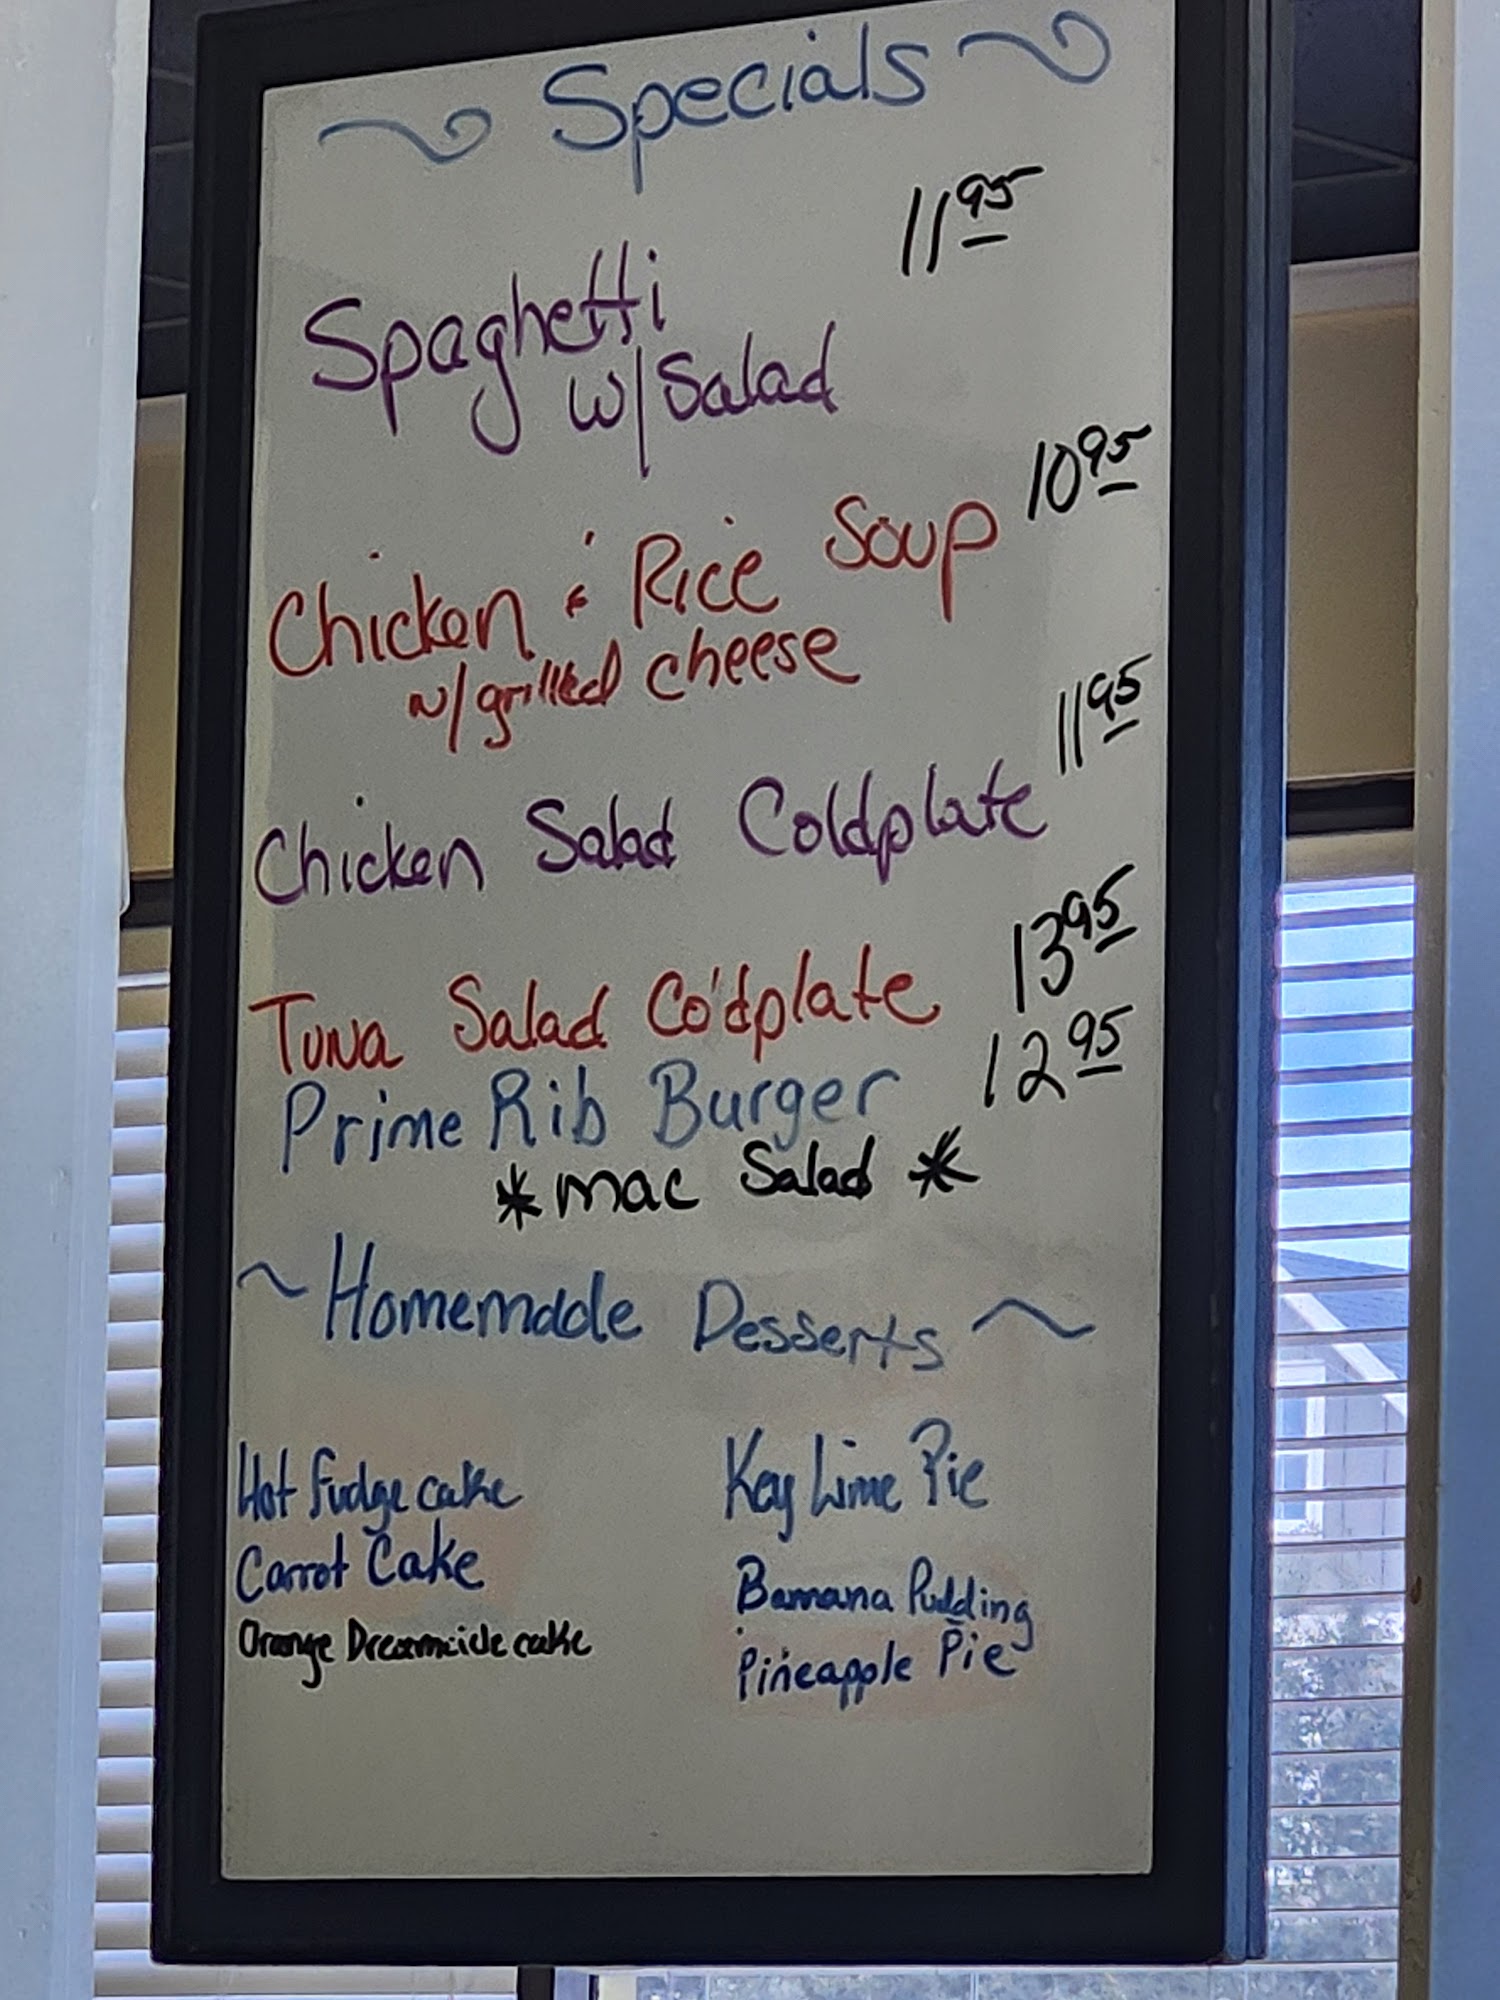 ~ Specials ~
11 95
Spaghetti
w/ Salad
10 95
Chicken & Rice Soup
w/ grilled cheese
11 95
Chicken Salad Coldplate
Tuna Salad Coldplate 13 95
Prime Rib Burger 12 95
* mac Salad *
~ Homemade Desserts ~
Hot fudge cake
Carrot Cake
Orange Dreamcicle cake
Key Lime Pie
Banana Pudding
Pineapple Pie